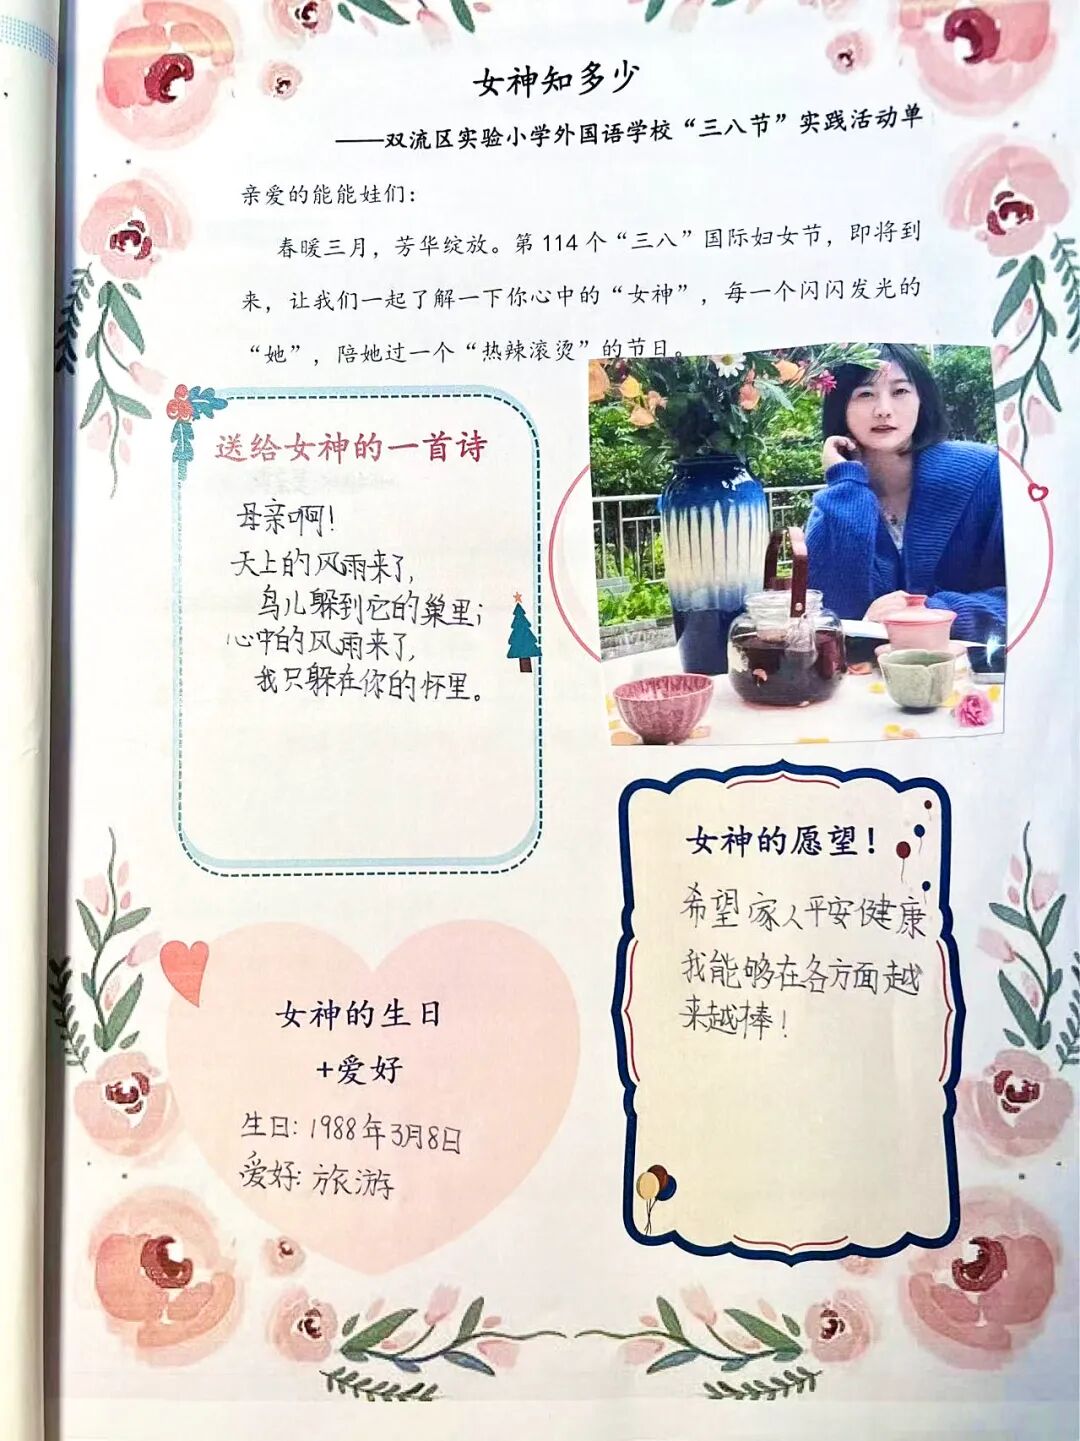 女神知多少
——双流区实验小学外国语学校“三八节”实践活动单
亲爱的能能娃们：
春暖三月，芳华绽放。第114个“三八”国际妇女节，即将到
来，让我们一起了解一下你心中的“女神”，每一个闪闪发光的
“她”，陪她过一个“热辣滚烫”的节日。
送给女神的一首诗
母亲啊！
天上的风雨来了，
鸟儿躲到它的巢里；
心中的风雨来了，
我只躲在你的怀里。
女神的愿望！
希望家人平安健康
我能够在各方面越
来越棒！
女神的生日
+爱好
生日：1988年3月8日
爱好：旅游